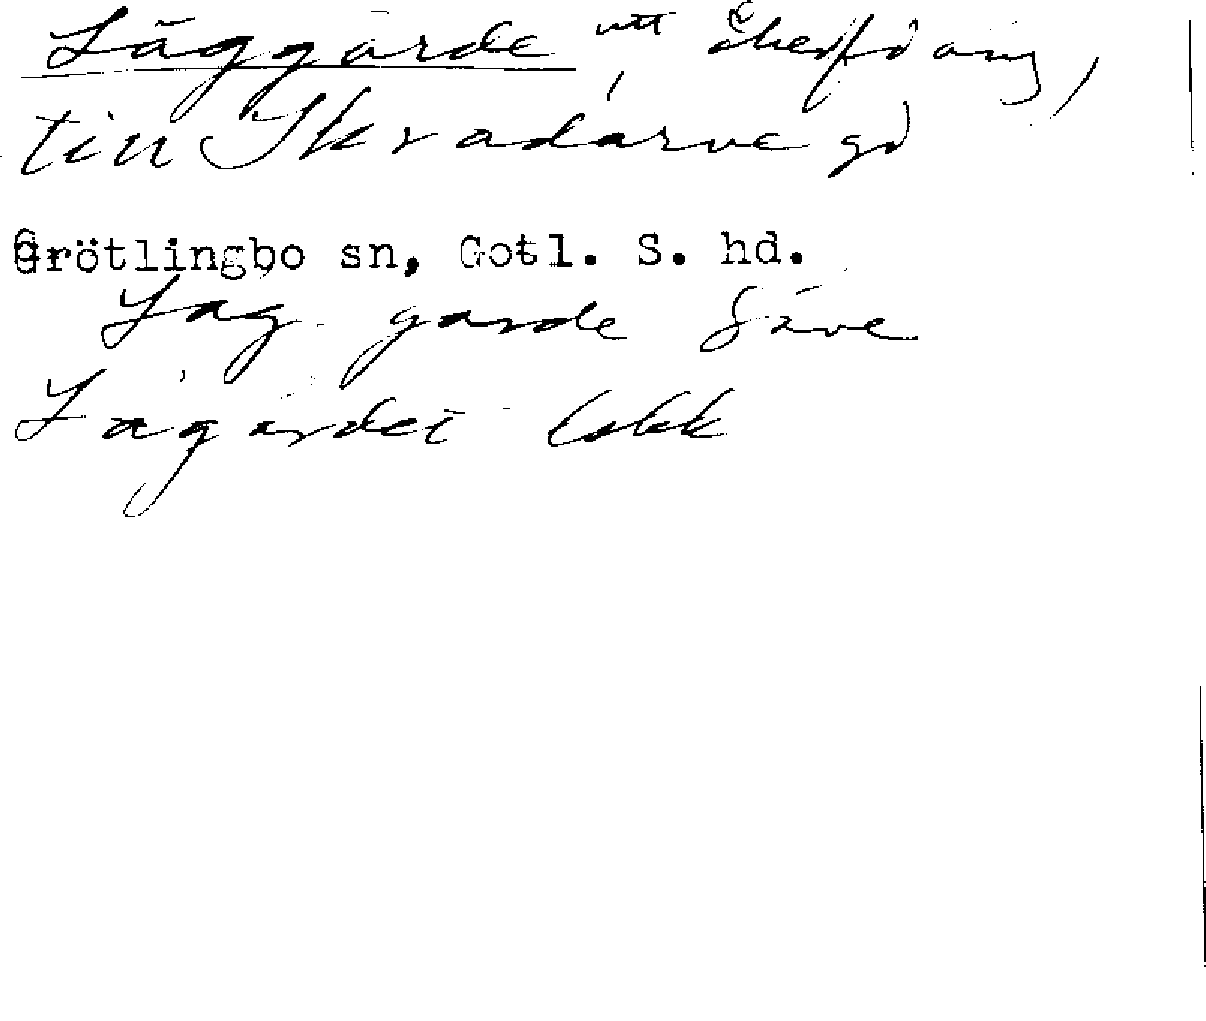 Läggärde, ett åker o äng,
till Skradarve gd
Grötlingbo sn, Gotl. S. hd.
Lag garde Säve
Lagärdet